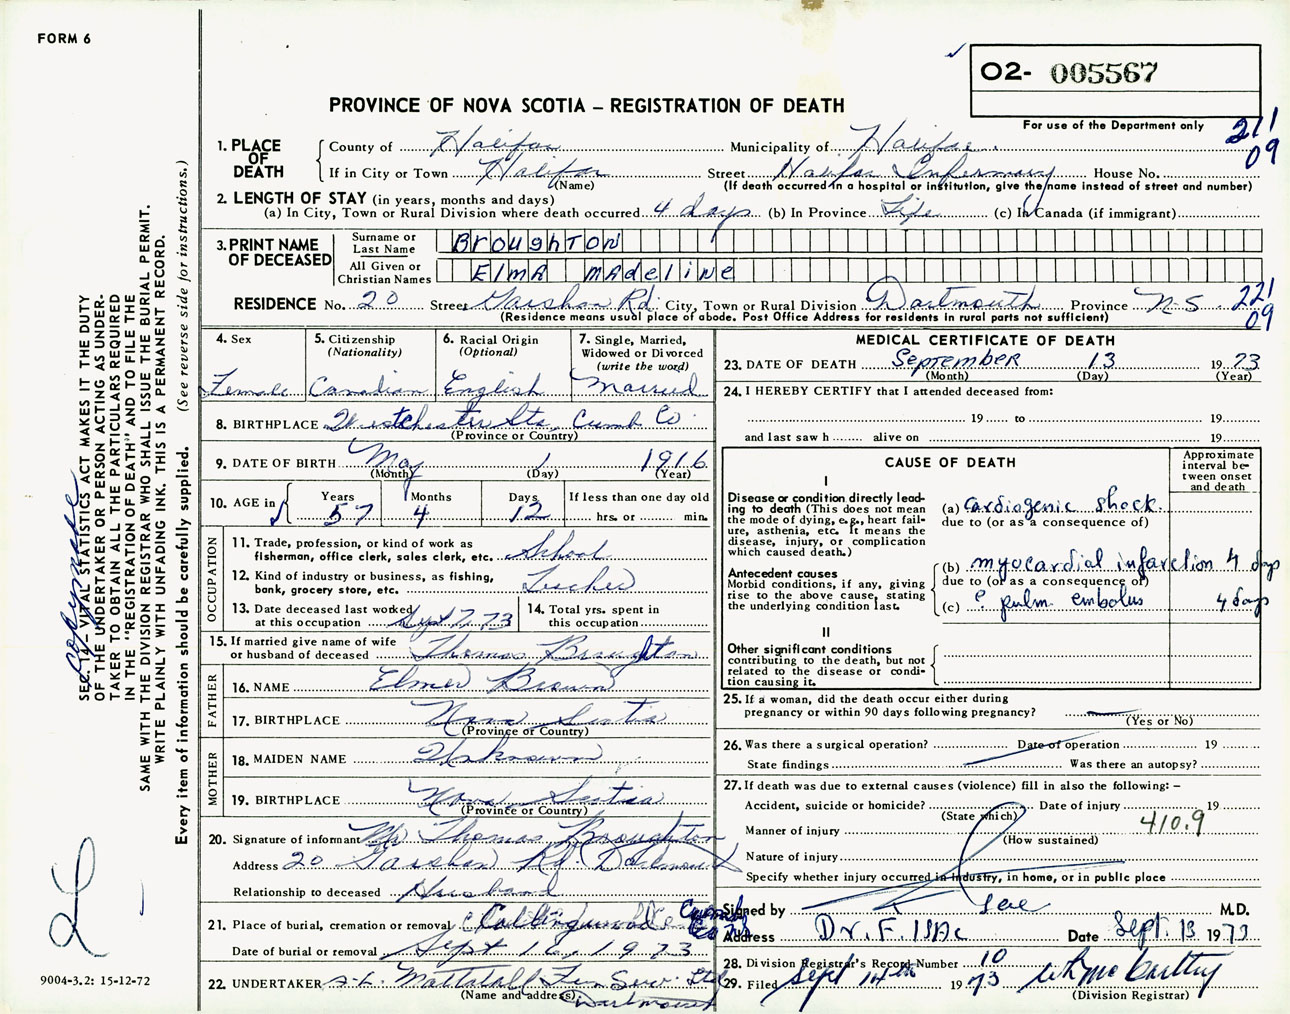 FORM 6
O2- 005567
PROVINCE OF NOVA SCOTIA – REGISTRATION OF DEATH
For use of the Department only
211
09
1. PLACE OF DEATH
County of Halifax Municipality of Halifax
If in City or Town Halifax Street Halifax Infirmary House No.
(Name) (If death occurred in a hospital or institution, give the name instead of street and number)
2. LENGTH OF STAY (in years, months and days)
(a) In City, Town or Rural Division where death occurred 4 days (b) In Province Life (c) In Canada (if immigrant)
3. PRINT NAME OF DECEASED
Surname or Last Name BROUGHTON
All Given or Christian Names ELMA MADELINE
RESIDENCE No. 20 Street Garshan Rd. City, Town or Rural Division Dartmouth Province N-S. 221
09
(Residence means usual place of abode. Post Office Address for residents in rural parts not sufficient)
4. Sex 5. Citizenship (Nationality) 6. Racial Origin (Optional) 7. Single, Married, Widowed or Divorced (write the word)
Female Canadian English Married
8. BIRTHPLACE Westchester Sta. Cumb Co
(Province or Country)
9. DATE OF BIRTH May 1 1916
(Month) (Day) (Year)
10. AGE in Years 57 Months 4 Days 12 If less than one day old hrs. or min.
OCCUPATION
11. Trade, profession, or kind of work as fisherman, office clerk, sales clerk, etc. School
12. Kind of industry or business, as fishing, bank, grocery store, etc. Teacher
13. Date deceased last worked at this occupation Sept 7, 73 14. Total yrs. spent in this occupation
15. If married give name of wife or husband of deceased Thomas Broughton
FATHER
16. NAME Elmer Brown
17. BIRTHPLACE Nova Scotia
(Province or Country)
MOTHER
18. MAIDEN NAME Unknown
19. BIRTHPLACE Nova Scotia
(Province or Country)
20. Signature of informant Mr Thomas Broughton
Address 20 Garshan Rd. Dartmouth
Relationship to deceased Husband
21. Place of burial, cremation or removal Collingwood
Date of burial or removal Sept 16, 1973
22. UNDERTAKER Mattatall Fun Serv. Ltd
(Name and address) Dartmouth
MEDICAL CERTIFICATE OF DEATH
23. DATE OF DEATH September 13 1973
(Month) (Day) (Year)
24. I HEREBY CERTIFY that I attended deceased from:
19 to 19
and last saw h alive on 19
CAUSE OF DEATH
Approximate interval between onset and death
I
Disease or condition directly leading to death (This does not mean the mode of dying, e.g., heart failure, asthenia, etc. It means the disease, injury, or complication which caused death.)
(a) cardiogenic shock
due to (or as a consequence of)
Antecedent causes
Morbid conditions, if any, giving rise to the above cause, stating the underlying condition last.
(b) myocardial infarction 4 days
due to (or as a consequence of)
(c) ? pulm embolus 4 days
II
Other significant conditions contributing to the death, but not related to the disease or condition causing it.
25. If a woman, did the death occur either during pregnancy or within 90 days following pregnancy? —
(Yes or No)
26. Was there a surgical operation? Date of operation 19
State findings Was there an autopsy?
27. If death was due to external causes (violence) fill in also the following: –
Accident, suicide or homicide? Date of injury 19
(State which)
Manner of injury 410.9
(How sustained)
Nature of injury
Specify whether injury occurred in industry, in home, or in public place
Signed by M.D.
Address Dr. F. ISAC Date Sept. 13 1973
28. Division Registrar's Record Number 10
29. Filed Sept 14th 1973
(Division Registrar)
SEC. 14 – VITAL STATISTICS ACT MAKES IT THE DUTY
OF THE UNDERTAKER OR PERSON ACTING AS UNDERTAKER TO OBTAIN ALL THE PARTICULARS REQUIRED
IN THE "REGISTRATION OF DEATH" AND TO FILE THE
SAME WITH THE DIVISION REGISTRAR WHO SHALL ISSUE THE BURIAL PERMIT.
WRITE PLAINLY WITH UNFADING INK. THIS IS A PERMANENT RECORD.
Every item of information should be carefully supplied. (See reverse side for instructions.)
9004-3.2: 15-12-72